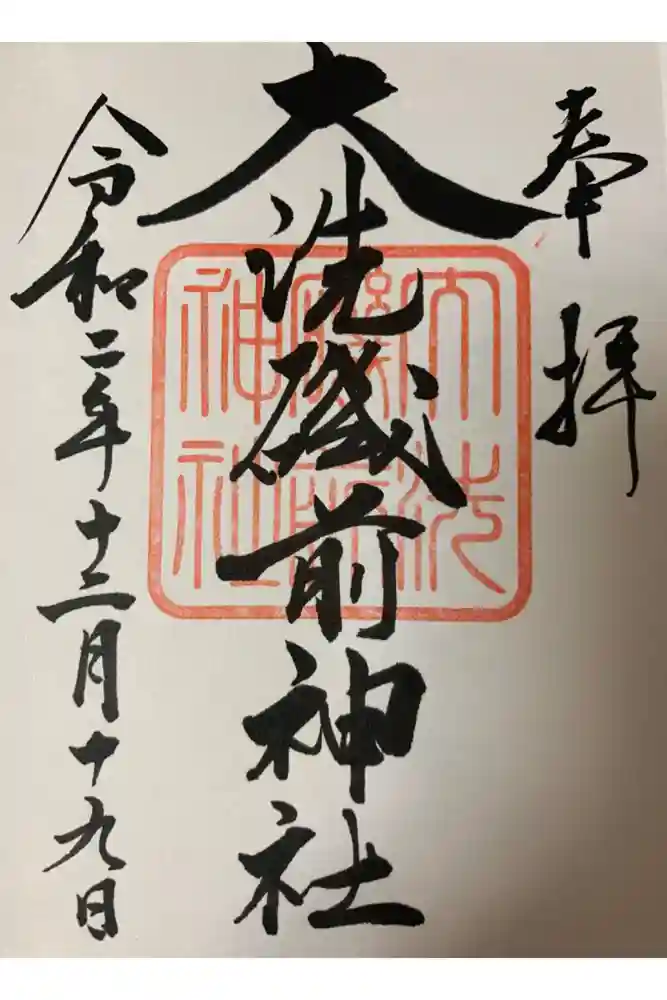 奉拝
大洗磯前神社
令和二年十二月十九日
大洗磯前神社